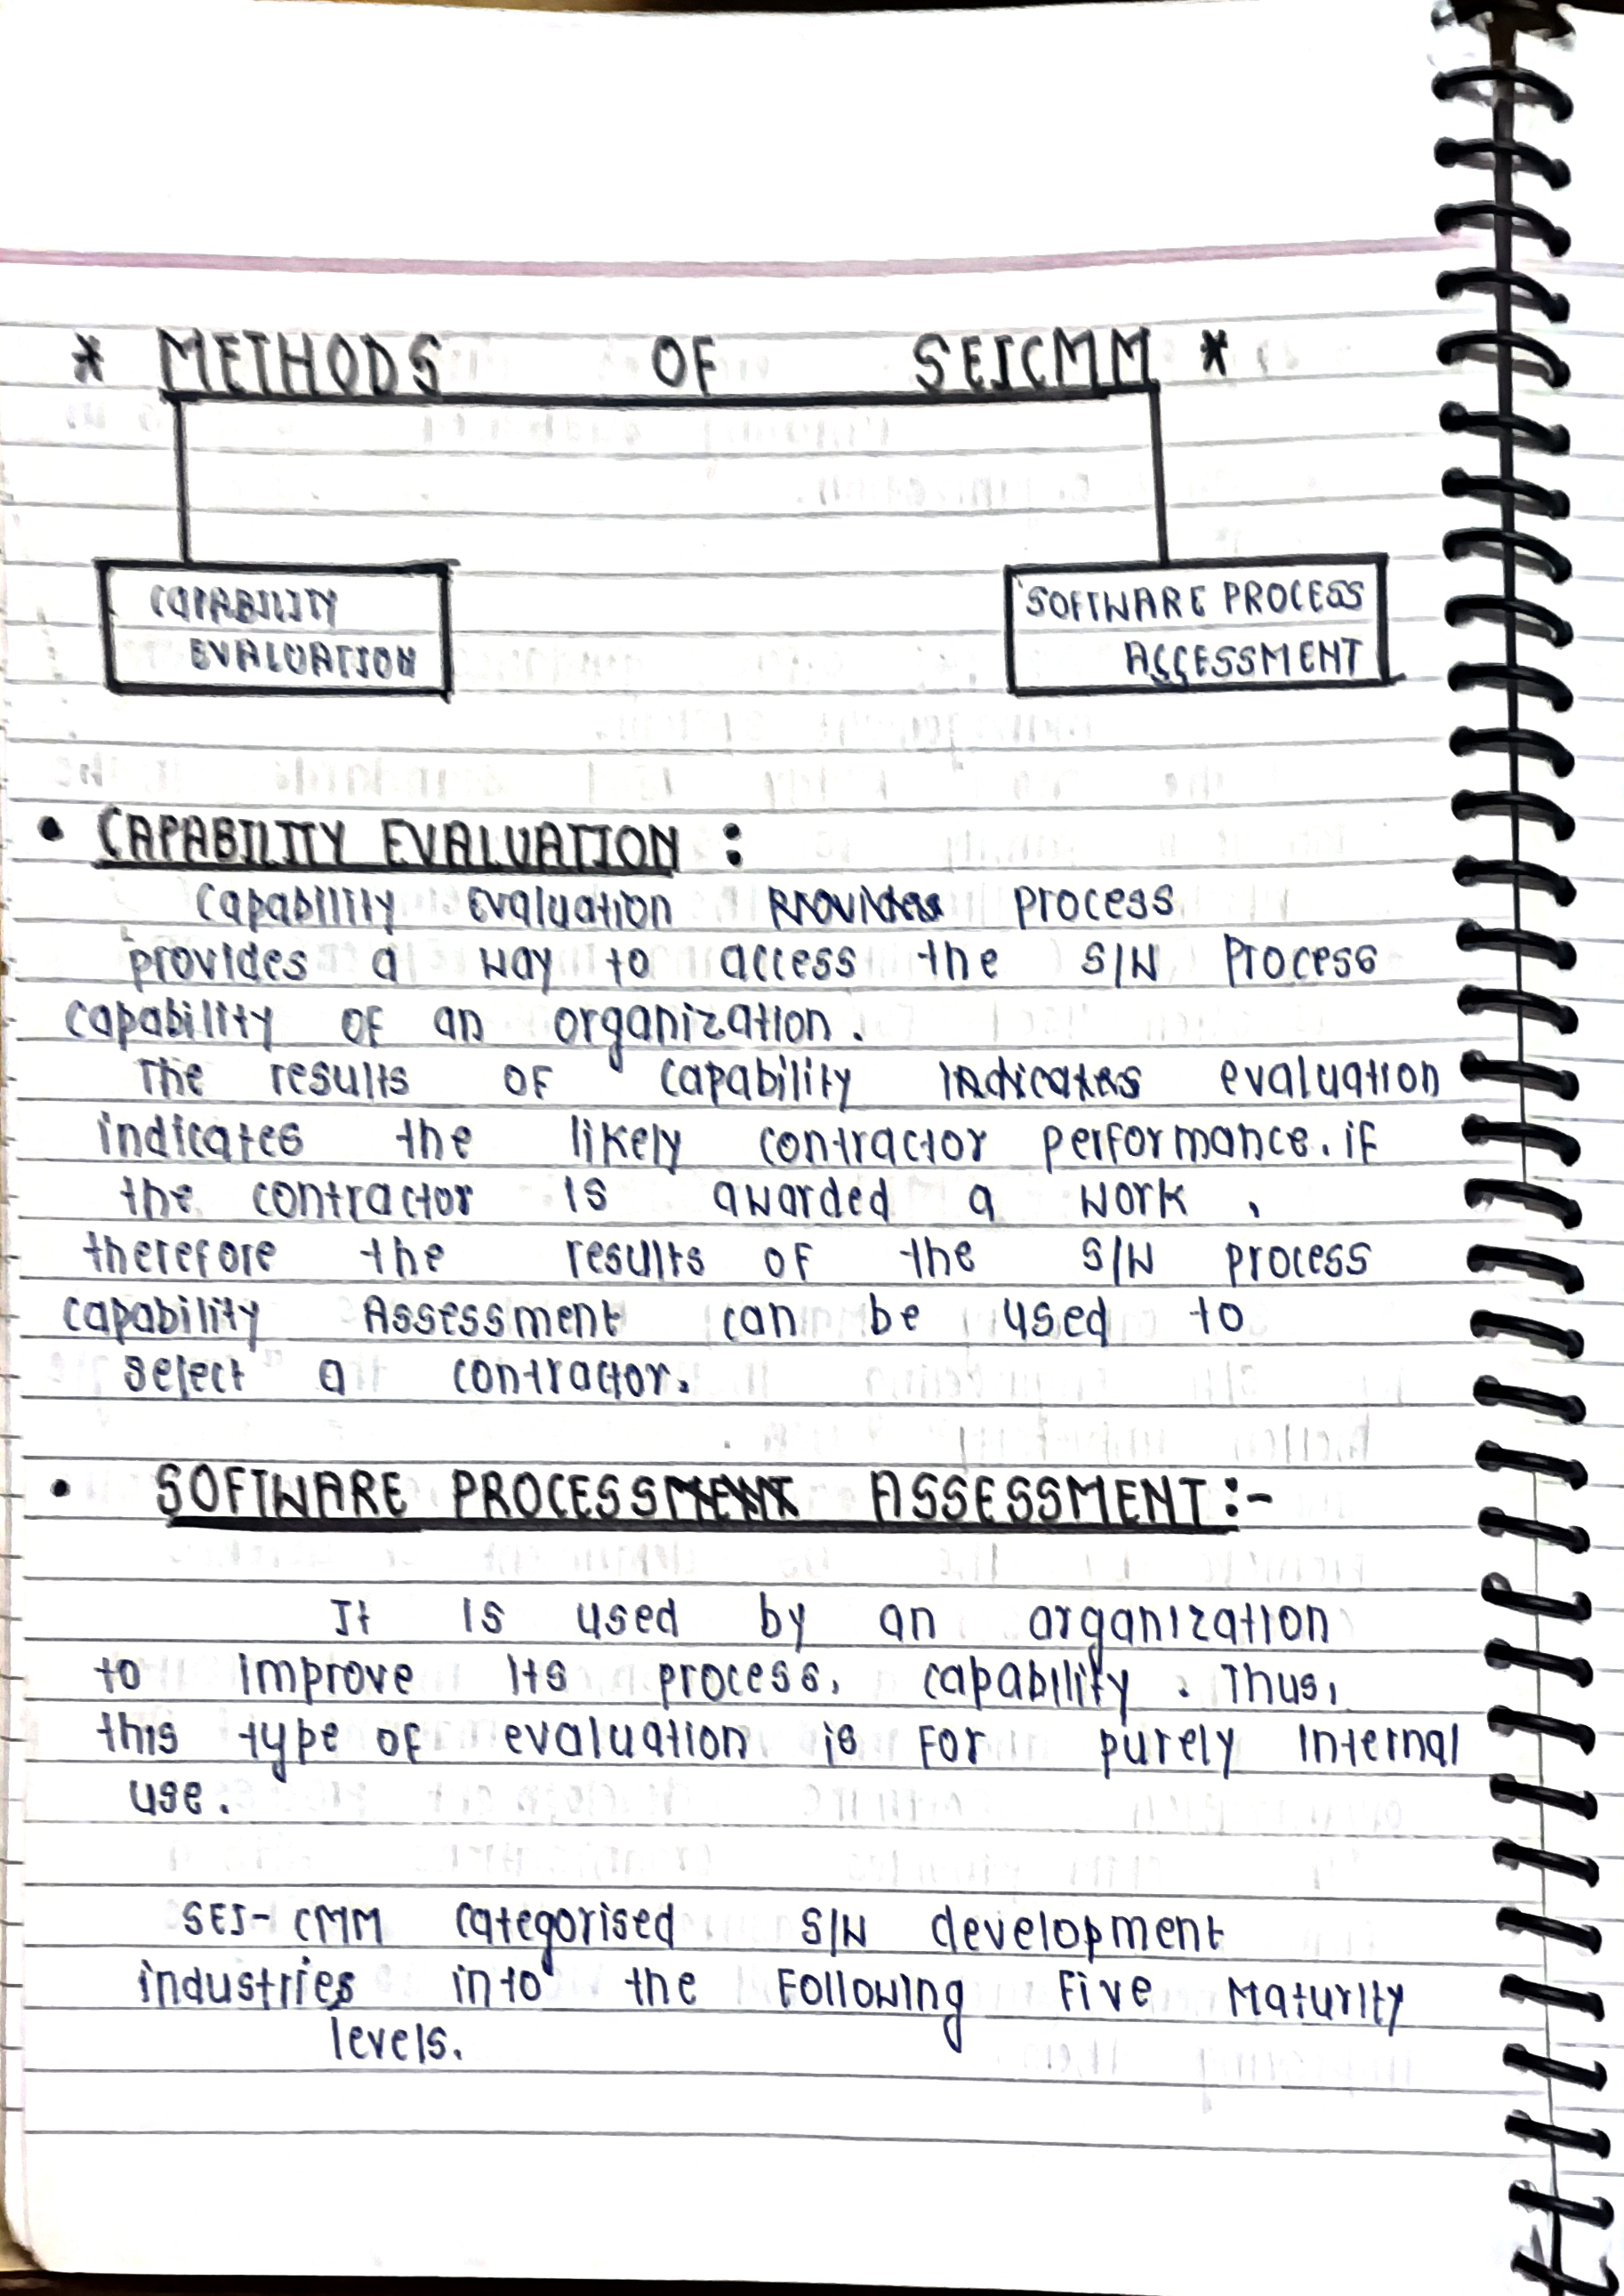 * METHODS OF SEICMM *
CAPABILITY
EVALUATION
SOFTWARE PROCESS
ASSESSMENT
• CAPABILITY EVALUATION :
Capability Evaluation process
provides a way to access the S/W Process
capability OF an organization.
The results OF capability evaluation
indicates the likely contractor performance. if
the contractor is awarded a work ,
therefore the results OF the S/W process
capability Assessment can be used to
select a contractor.
• SOFTWARE PROCESS ASSESSMENT :-
It is used by an organization
to improve its process, capability . Thus,
this type OF evaluation is For purely internal
use.
SEI- CMM categorised S/W development
industries into the Following Five Maturity
levels.